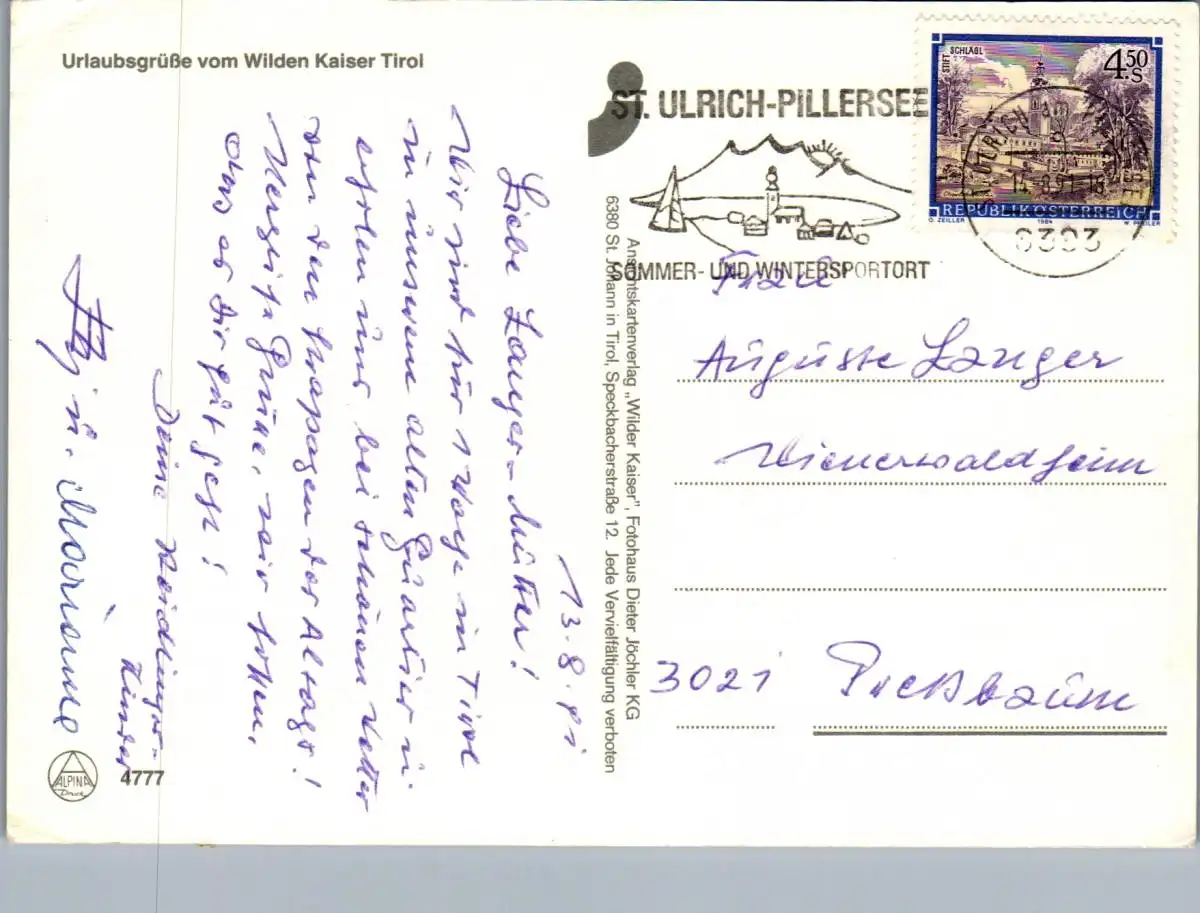 Urlaubsgrüße vom Wilden Kaiser Tirol
ST. ULRICH-PILLERSEE
SOMMER- UND WINTERSPORTORT
STIFT SCHLÄGL
4.50 S
REPUBLIK ÖSTERREICH
O. ZEILLER 1984 W. PFEILER
6393
13.8.91
Liebe Langer-Mutter!
Wir sind für 1 Woche in Tirol
in unserem alten Quartier u.
erholen uns bei schönem Wetter
von den Strapazen des Alltags!
Herzliche Grüße, wir hoffen,
dass es Dir gut geht!
Deine
Kinder
u. Marianne
Ansichtskartenverlag „Wilder Kaiser", Fotohaus Dieter Jöchler KG
6380 St. Johann in Tirol, Speckbacherstraße 12. Jede Vervielfältigung verboten
Frau
Auguste Langer
Wienerwaldheim
3021 Pressbaum
ALPINA
Druck
4777